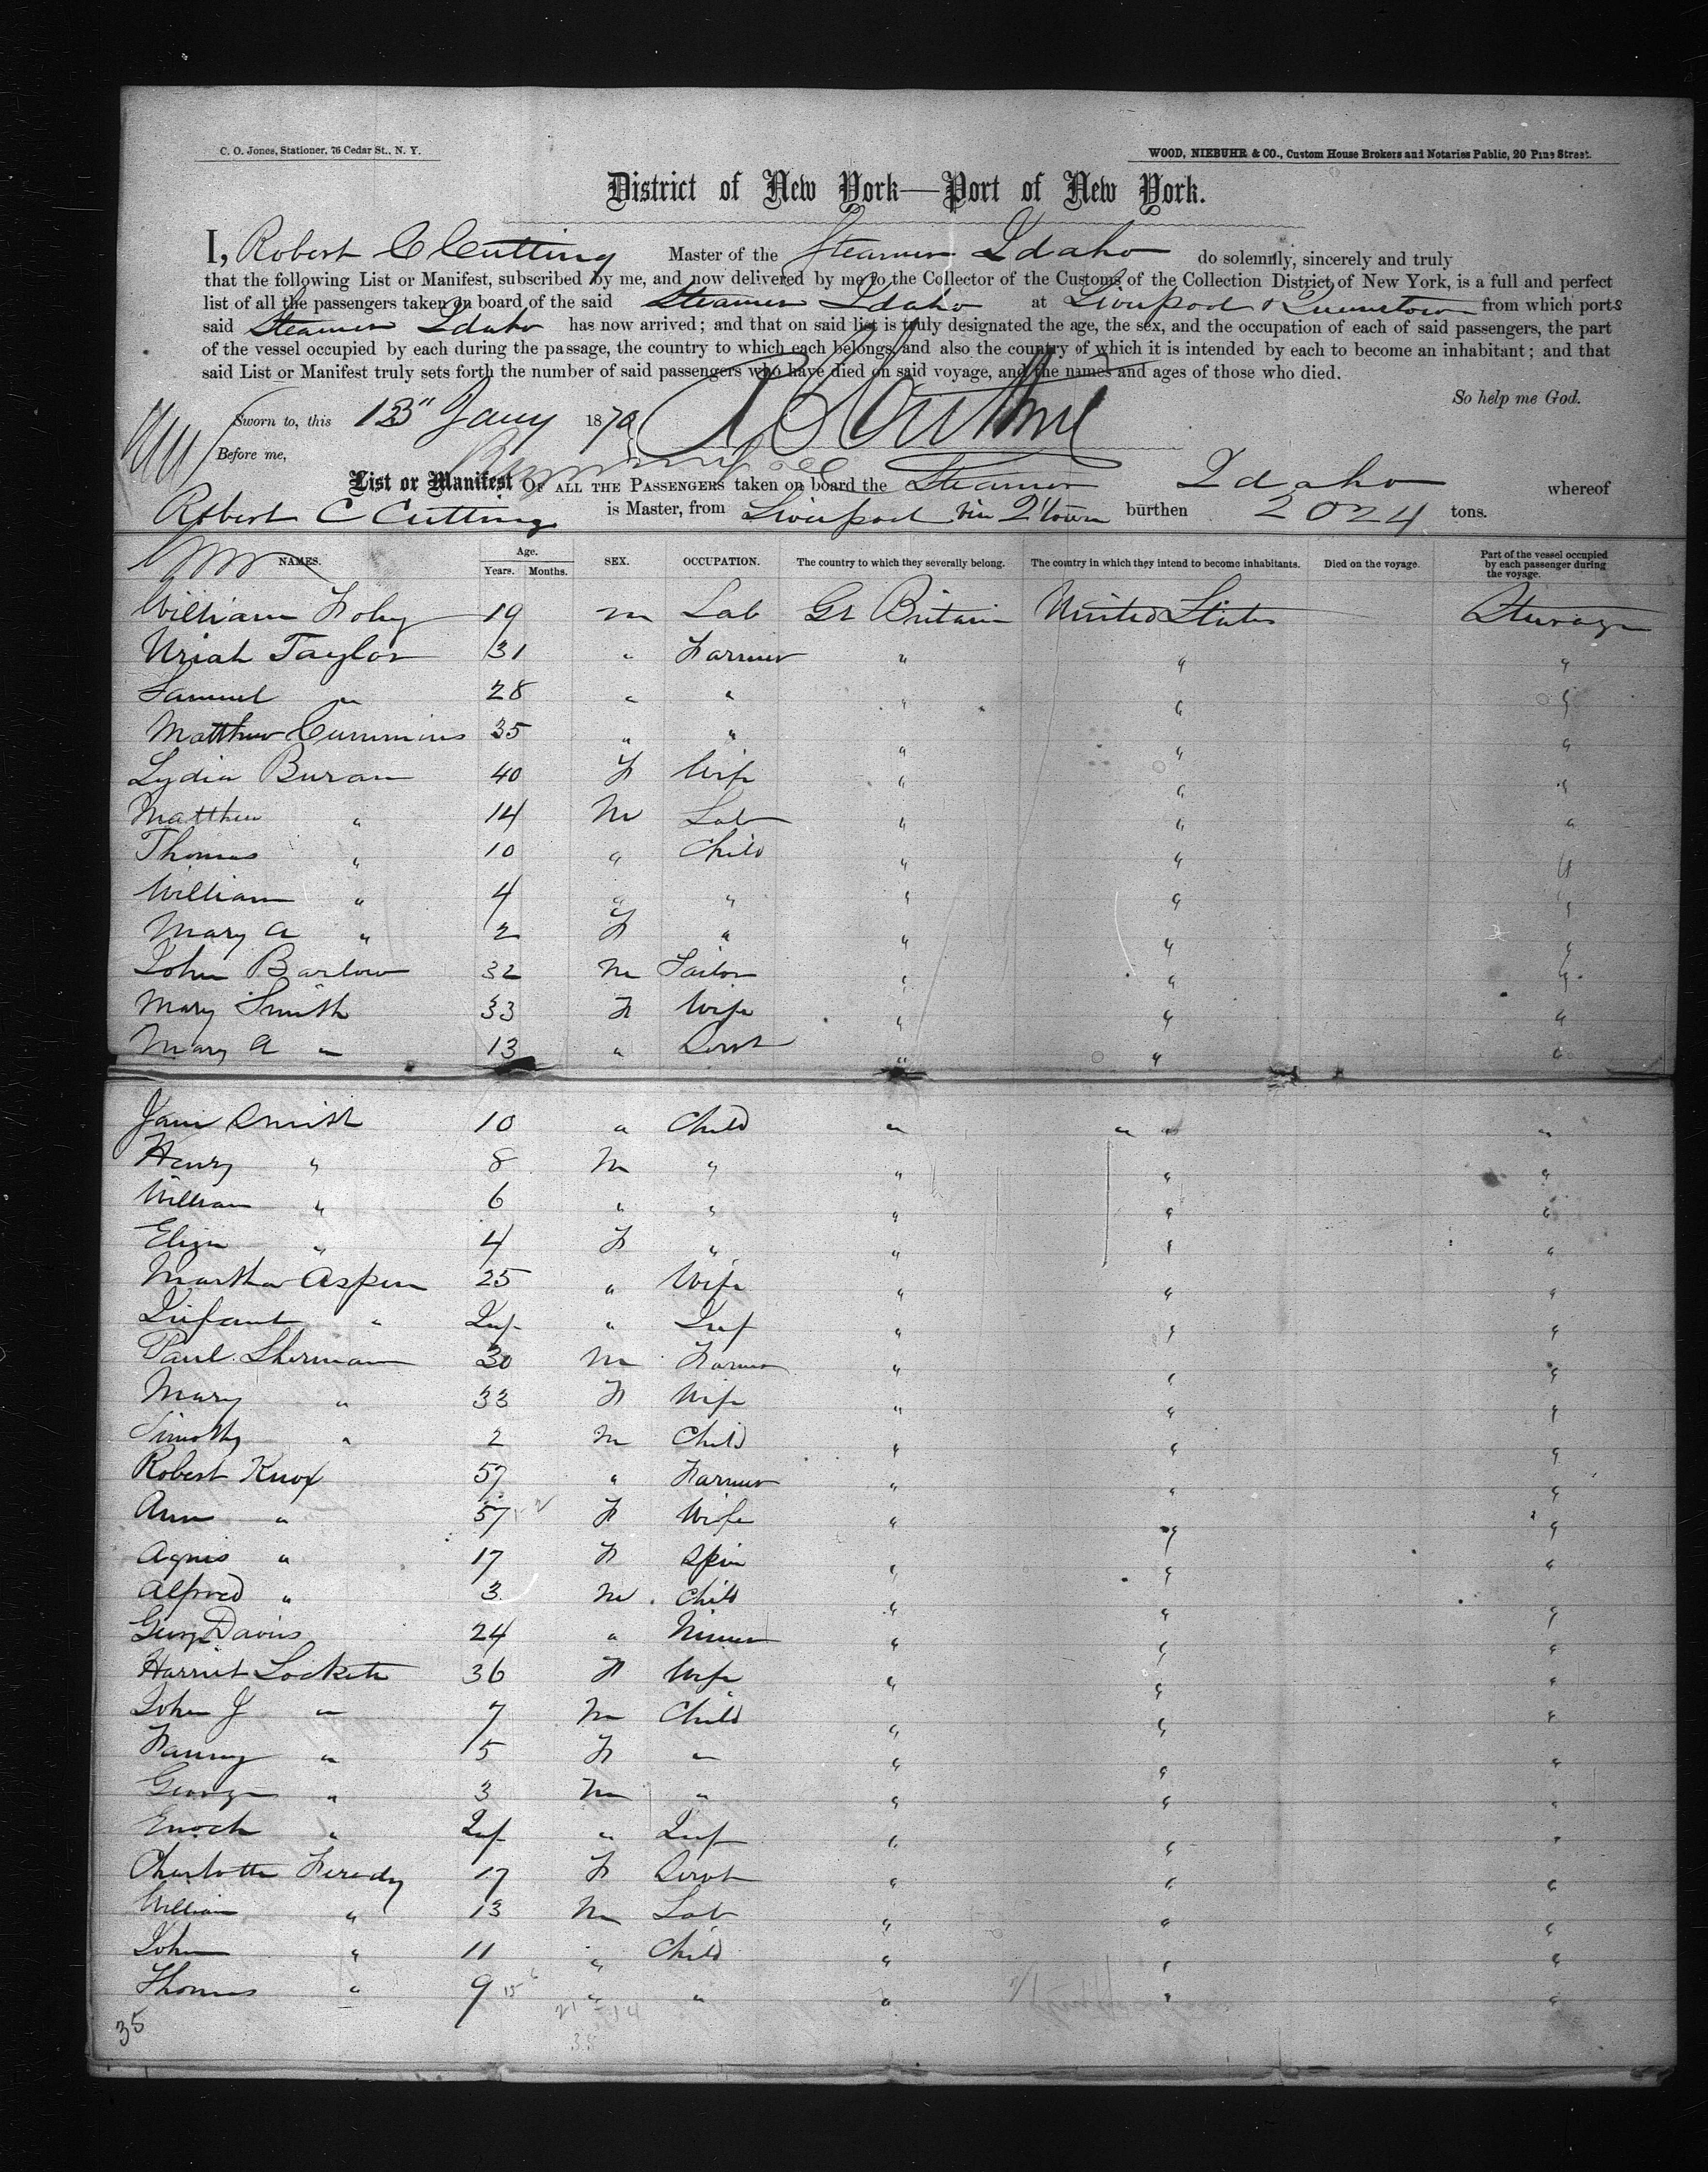 C. O. Jones, Stationer, 76 Cedar St., N. Y.
WOOD, NIEBUHR & CO., Custom House Brokers and Notaries Public, 20 Pine Street.
District of New York—Port of New York.
I, Robert C Cutting Master of the Steamer Idaho do solemnly, sincerely and truly
that the following List or Manifest, subscribed by me, and now delivered by me to the Collector of the Customs of the Collection District of New York, is a full and perfect
list of all the passengers taken on board of the said Steamer Idaho at Liverpool & Queenstown from which ports
said Steamer Idaho has now arrived; and that on said list is truly designated the age, the sex, and the occupation of each of said passengers, the part
of the vessel occupied by each during the passage, the country to which each belongs, and also the country of which it is intended by each to become an inhabitant; and that
said List or Manifest truly sets forth the number of said passengers who have died on said voyage, and the names and ages of those who died.
So help me God.
Sworn to, this 13" Jany 1870
Before me,
List or Manifest OF ALL THE PASSENGERS taken on board the Steamer Idaho whereof
Robert C Cutting is Master, from Liverpool via Q'town burthen 2024 tons.
NAMES. Age. Years. Months. SEX. OCCUPATION. The country to which they severally belong. The country in which they intend to become inhabitants. Died on the voyage. Part of the vessel occupied by each passenger during the voyage.
William 19 m Lab Gt Britain United States Steerage
Uriah Taylor 31 " Farmer " " "
Samuel " 28 " " " " "
Matthew Cummins 35 " " " " "
Lydia Buran 40 F Wife " " "
Matthew " 14 M Lab " " "
Thomas " 10 " Child " " "
William " 4 " " " " "
Mary A " 2 F " " " "
John Barlow 32 m Sailor " " "
Mary Smith 33 F Wife " " "
Mary A " 13 " Servt " " "
Jane Smith 10 " Child " " " "
Henry " 8 M " " " "
William " 6 " " " " "
Eliza " 4 F " " " "
Martha Aspen 25 " Wife " " "
Infant " Inf " Inf " " "
Paul Sherman 30 M Farmer " " "
Mary " 33 F Wife " " "
Timothy " 2 M Child " " "
Robert Knox 57 " Farmer " " "
Ann " 57 F Wife " " "
Agnes " 17 F Spin " " "
Alfred " 3 M Child " " "
George Davis 24 " Miner " " "
Harriet Lockett 36 F Wife " " "
John J " 7 M Child " " "
Fanny " 5 F " " " "
George " 3 M " " " "
Enoch " Inf " Inf " " "
Charlotte 17 F Servt " " "
William " 13 M Lab " " "
John " 11 " Child " " "
Thomas " 9 " " " " "
35